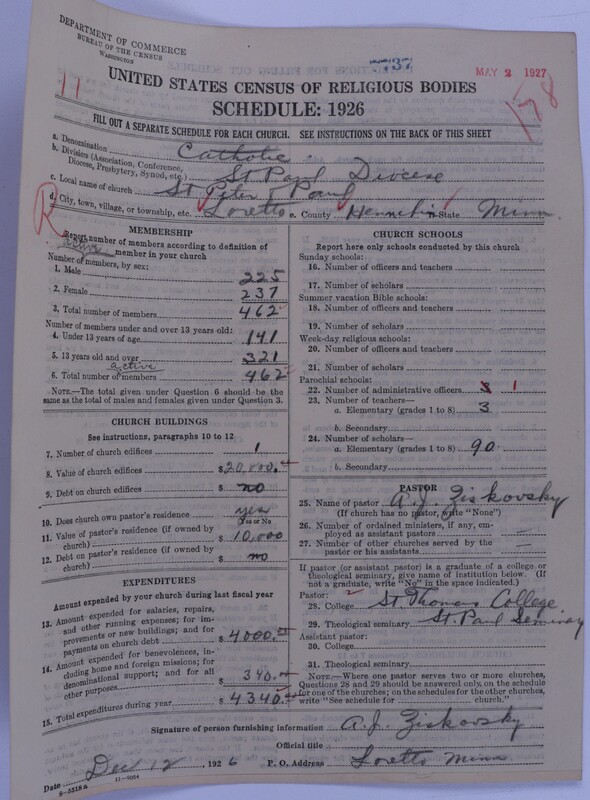 DEPARTMENT OF COMMERCE
BUREAU OF THE CENSUS
WASHINGTON
737
MAY 2 1927
11
178
UNITED STATES CENSUS OF RELIGIOUS BODIES
SCHEDULE: 1926
FILL OUT A SEPARATE SCHEDULE FOR EACH CHURCH. SEE INSTRUCTIONS ON THE BACK OF THIS SHEET
a. Denomination Catholic
b. Division (Association, Conference, Diocese, Presbytery, Synod, etc.) St Paul Diocese
c. Local name of church St Peter & Paul
R
d. City, town, village, or township, etc. Loretto e. County Hennepin State Minn.
MEMBERSHIP
Report number of members according to definition of
active member in your church
Number of members, by sex:
1. Male 225
2. Female 237
3. Total number of members 462
Number of members under and over 13 years old:
4. Under 13 years of age 141
5. 13 years old and over 321
active
6. Total number of members 462
NOTE.—The total given under Question 6 should be the
same as the total of males and females given under Question 3.
CHURCH BUILDINGS
See instructions, paragraphs 10 to 12
7. Number of church edifices 1
8. Value of church edifices $20,000.
9. Debt on church edifices $ no
10. Does church own pastor's residence? yes
Yes or No
11. Value of pastor's residence (if owned by
church) $ 10,000
12. Debt on pastor's residence (if owned by
church) $ no
EXPENDITURES
Amount expended by your church during last fiscal year
13. Amount expended for salaries, repairs,
and other running expenses; for im-
provements or new buildings; and for
payments on church debt $4000.
14. Amount expended for benevolences, in-
cluding home and foreign missions; for
denominational support; and for all
other purposes $ 340.
15. Total expenditures during year $4340.
CHURCH SCHOOLS
Report here only schools conducted by this church
Sunday schools:
16. Number of officers and teachers
17. Number of scholars
Summer vacation Bible schools:
18. Number of officers and teachers
19. Number of scholars
Week-day religious schools:
20. Number of officers and teachers
21. Number of scholars
Parochial schools:
22. Number of administrative officers 3 1
23. Number of teachers—
a. Elementary (grades 1 to 8) 3
b. Secondary
24. Number of scholars—
a. Elementary (grades 1 to 8) 90
b. Secondary
PASTOR
25. Name of pastor A. J. Ziskovsky
(If church has no pastor, write "None")
26. Number of ordained ministers, if any, em-
ployed as assistant pastors
27. Number of other churches served by the
pastor or his assistants
If pastor (or assistant pastor) is a graduate of a college or
theological seminary, give name of institution below. (If
not a graduate, write "No" in the space indicated.)
Pastor:
28. College St. Thomas College
29. Theological seminary St. Paul Seminary
Assistant pastor:
30. College
31. Theological seminary
NOTE.—Where one pastor serves two or more churches,
Questions 28 and 29 should be answered only, on the schedule
for one of the churches; on the schedules for the other churches,
write "See schedule for church."
Signature of person furnishing information A. J. Ziskovsky
Official title
Date Dec 12, 1926 P. O. Address Loretto Minn
8-5318a 11-9054